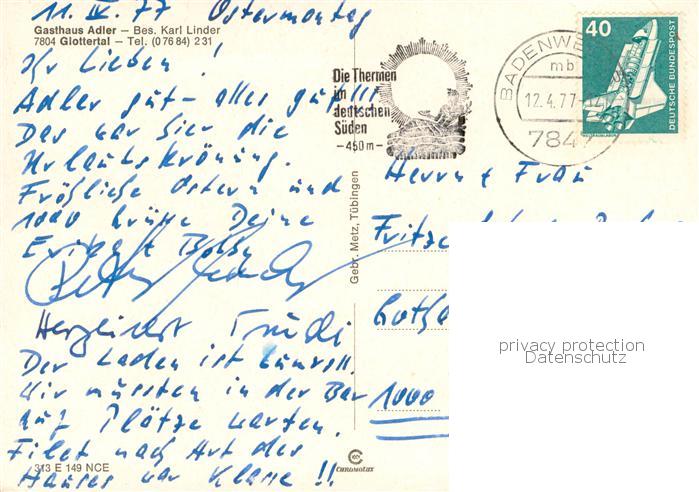 11. IV. 77 Ostermontag
Gasthaus Adler – Bes. Karl Linder
7804 Glottertal – Tel. (0 76 84) 2 31
Ihr Lieben!
Adler gut - alles gut!
Das war hier die
Urlaubskrönung.
Fröhliche Ostern und
1000 Grüsse Deine
Herzlichst Trudi
Der Laden ist knallvoll.
Wir mussten in der Bar
auf Plätze warten.
Filet nach Art des
Hauses war Klasse!!
313 E 149 NCE
Gebr. Metz, Tübingen
CHROMOLUX
Die Thermen
im
deutschen
Süden
– 450 m –
BADENWE
mb
12.4.77
784
40
DEUTSCHE BUNDESPOST
WELTRAUMLABOR
Herrn & Frau
1000
privacy protection
Datenschutz